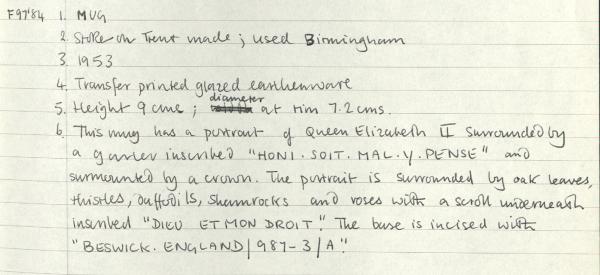 F97'84 1. MUG
2. Stoke on Trent made; used Birmingham
3. 1953
4. Transfer printed glazed earthenware
5. Height 9 cms; diameter at rim 7.2 cms.
6. This mug has a portrait of Queen Elizabeth II surrounded by
a garter inscribed "HONI.SOIT.MAL.Y.PENSE" and
surmounted by a crown. The portrait is surrounded by oak leaves,
thistles, daffodils, shamrocks and roses with a scroll underneath
inscribed "DIEU ET MON DROIT". The base is incised with
"BESWICK. ENGLAND/987-3/A".